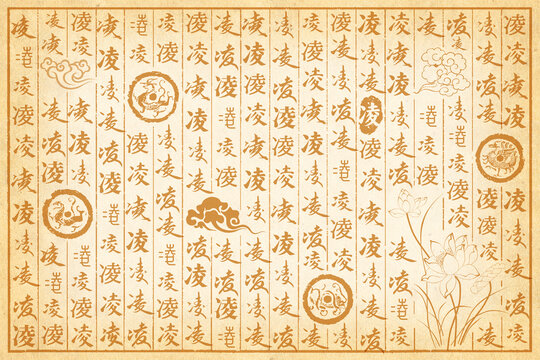 凌凌凌凌凌凌凌凌凌凌
凌凌凌凌凌凌凌凌凌
凌凌凌凌凌凌凌
凌凌凌凌凌
凌凌凌凌凌凌凌凌凌凌
凌凌凌凌凌凌凌凌凌凌凌凌
凌凌凌凌凌凌凌凌凌凌
凌凌凌凌凌凌凌凌凌凌
凌凌凌凌凌凌凌凌凌凌凌凌
凌凌凌凌凌凌凌凌凌凌凌
凌凌凌凌凌凌凌凌凌凌
凌凌凌凌凌凌凌凌凌凌
凌凌凌凌凌凌凌凌凌凌
凌凌凌凌凌凌凌凌凌凌
凌凌凌凌凌凌凌凌凌凌凌凌
凌凌凌凌凌凌凌凌凌凌
凌凌凌凌凌凌凌凌凌
凌凌凌凌凌凌凌凌凌凌凌凌